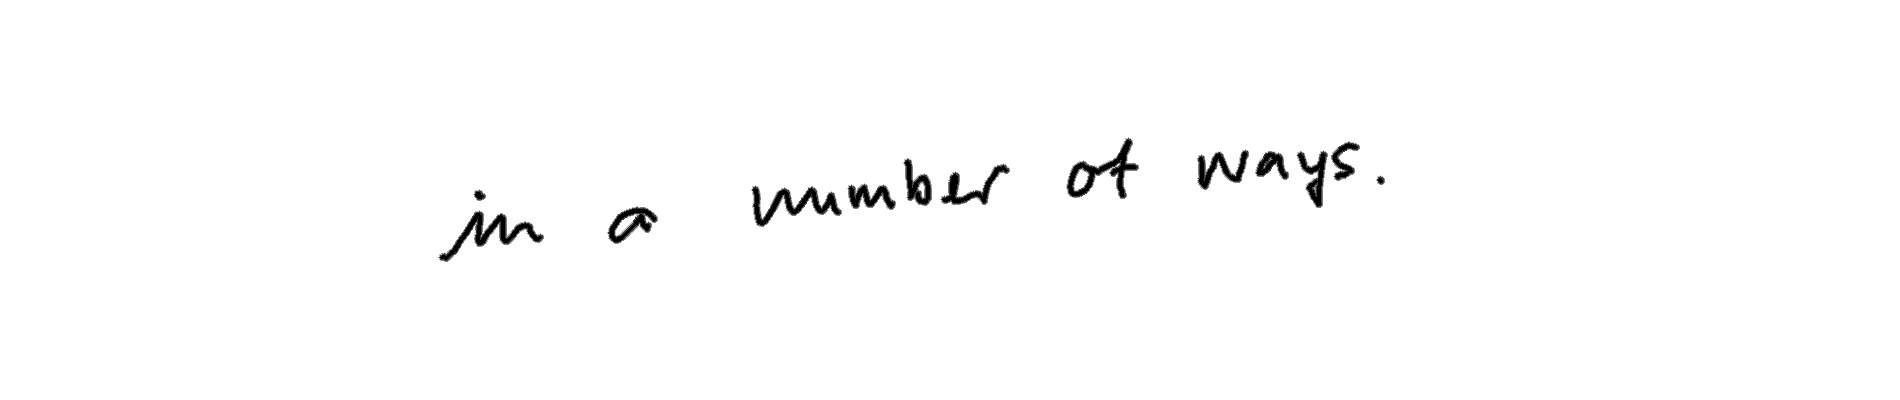 in a number of ways.